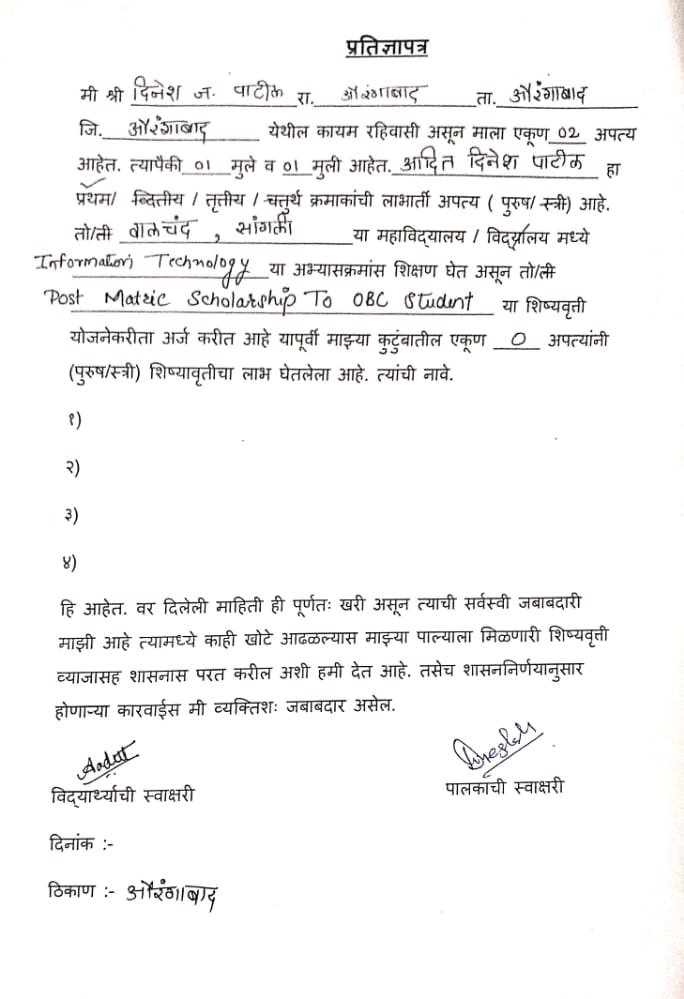 प्रतिज्ञापत्र
मी श्री दिनेश ज. पाटील रा. औरंगाबाद ता. औरंगाबाद
जि. औरंगाबाद येथील कायम रहिवासी असून माला एकूण 02 अपत्य
आहेत. त्यापैकी 01 मुले व 01 मुली आहेत. आदित दिनेश पाटील हा
प्रथम/ व्दितीय / तृत्तीय / चत्तुर्थ क्रमाकांची लाभार्ती अपत्य ( पुरुष/ स्त्री) आहे.
तो/ती वालचंद , सांगली या महाविद्यालय / विद्यालय मध्ये
Information Technology या अभ्यासक्रमांस शिक्षण घेत असून तो/ती
Post Matric Scholarship To OBC Student या शिष्यवृत्ती
योजनेकरीता अर्ज करीत आहे यापूर्वी माझ्या कुटुंबातील एकूण 0 अपत्यांनी
(पुरुष/स्त्री) शिष्यावृतीचा लाभ घेतलेला आहे. त्यांची नावे.
१)
२)
३)
४)
हि आहेत. वर दिलेली माहिती ही पूर्णतः खरी असून त्याची सर्वस्वी जबाबदारी
माझी आहे त्यामध्ये काही खोटे आढळल्यास माझ्या पाल्याला मिळणारी शिष्यवृत्ती
व्याजासह शासनास परत करील अशी हमी देत आहे. तसेच शासननिर्णयानुसार
होणाऱ्या कारवाईस मी व्यक्तिशः जबाबदार असेल.
विद्यार्थ्याची स्वाक्षरी पालकाची स्वाक्षरी
दिनांक :-
ठिकाण :- औरंगाबाद